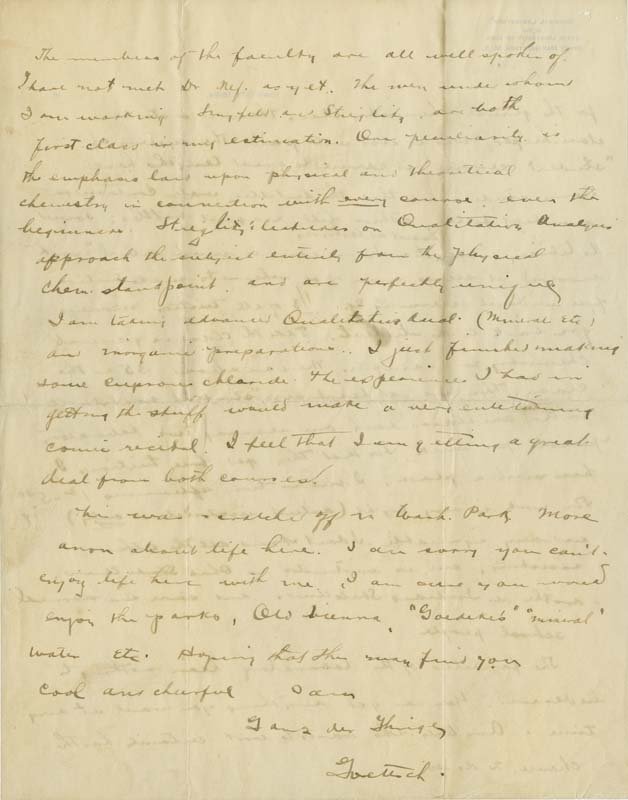 The members of the faculty are all well spoken of.
I have not met Dr Nef. as yet. The men under whom
I am working - Lengfeld and Stieglitz, are both
first class in my estimation. One peculiarity is
the emphasis laid upon physical and theoretical
chemistry in connection with every course, even the
beginners. Stieglitz's lectures on Qualitative Analysis
approach the subject entirely from the physical
chem. standpoint, and are perfectly unique
I am taking advanced Qualitative Anal. (Mineral Etc)
and inorganic preparations. I just finished making
some cuprous chloride. The experiences I had in
getting the stuff would make a very entertaining
comic recital. I feel that I am getting a great
deal from both courses.
This was scratched off in Wash. Park, More
anon about life here. I am sorry you can't
enjoy life here with me, I am sure you would
enjoy the parks, Old Vienna, "Goedeke's" "mineral"
water Etc. Hoping that this may find you
cool and cheerful I am
Ganz der Ihrige
Goettsch.